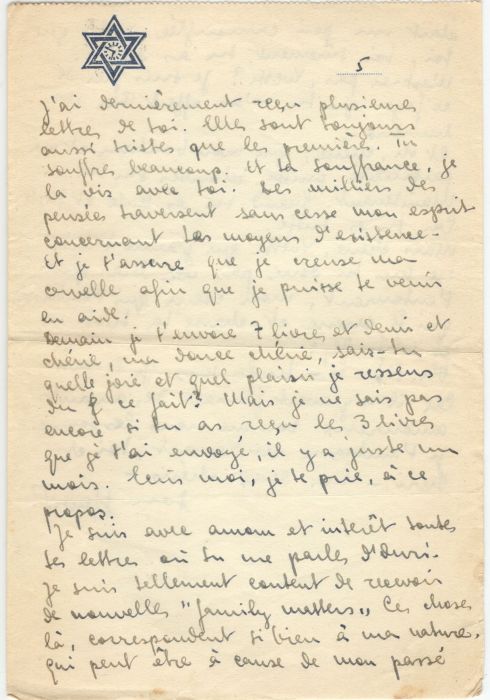 5
J'ai dernièrement reçu plusieurs
lettres de toi. Elles sont toujours
aussi tristes que les premières. Tu
souffres beaucoup. Et ta souffrance, je
la vis avec toi. Des milliers des
pensées traversent sans cesse mon esprit
concernant tes moyens d'existence-
Et je t'assure que je creuse ma
cervelle afin que je puisse te venir
en aide.
Demain je t'envoie 7 livres et demi et
chérie, ma douce chérie, sais-tu
quelle joie et quel plaisir je ressens
du ce fait? Mais je ne sais pas
encore si tu as reçu les 3 livres
que je t'ai envoyé, il y a juste un
mois. Ecris moi, je te prie, à ce
propos.
Je suis avec amour et intérêt toutes
tes lettres où tu me parles
Je suis tellement content de recevoir
de nouvelles "family matters" Ces choses
là, correspondent si bien à ma nature,
qui peut être à cause de mon passé